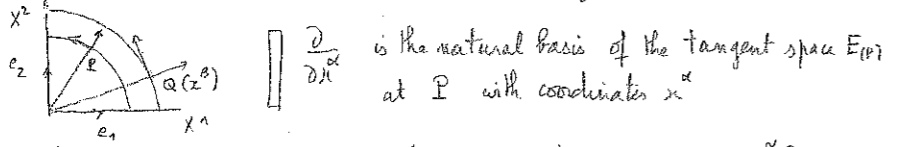 X²
e₂
P
Q(x^β)
e₁
X¹
∂/∂x^α is the natural basis of the tangent space E(P)
at P with coordinates x^α